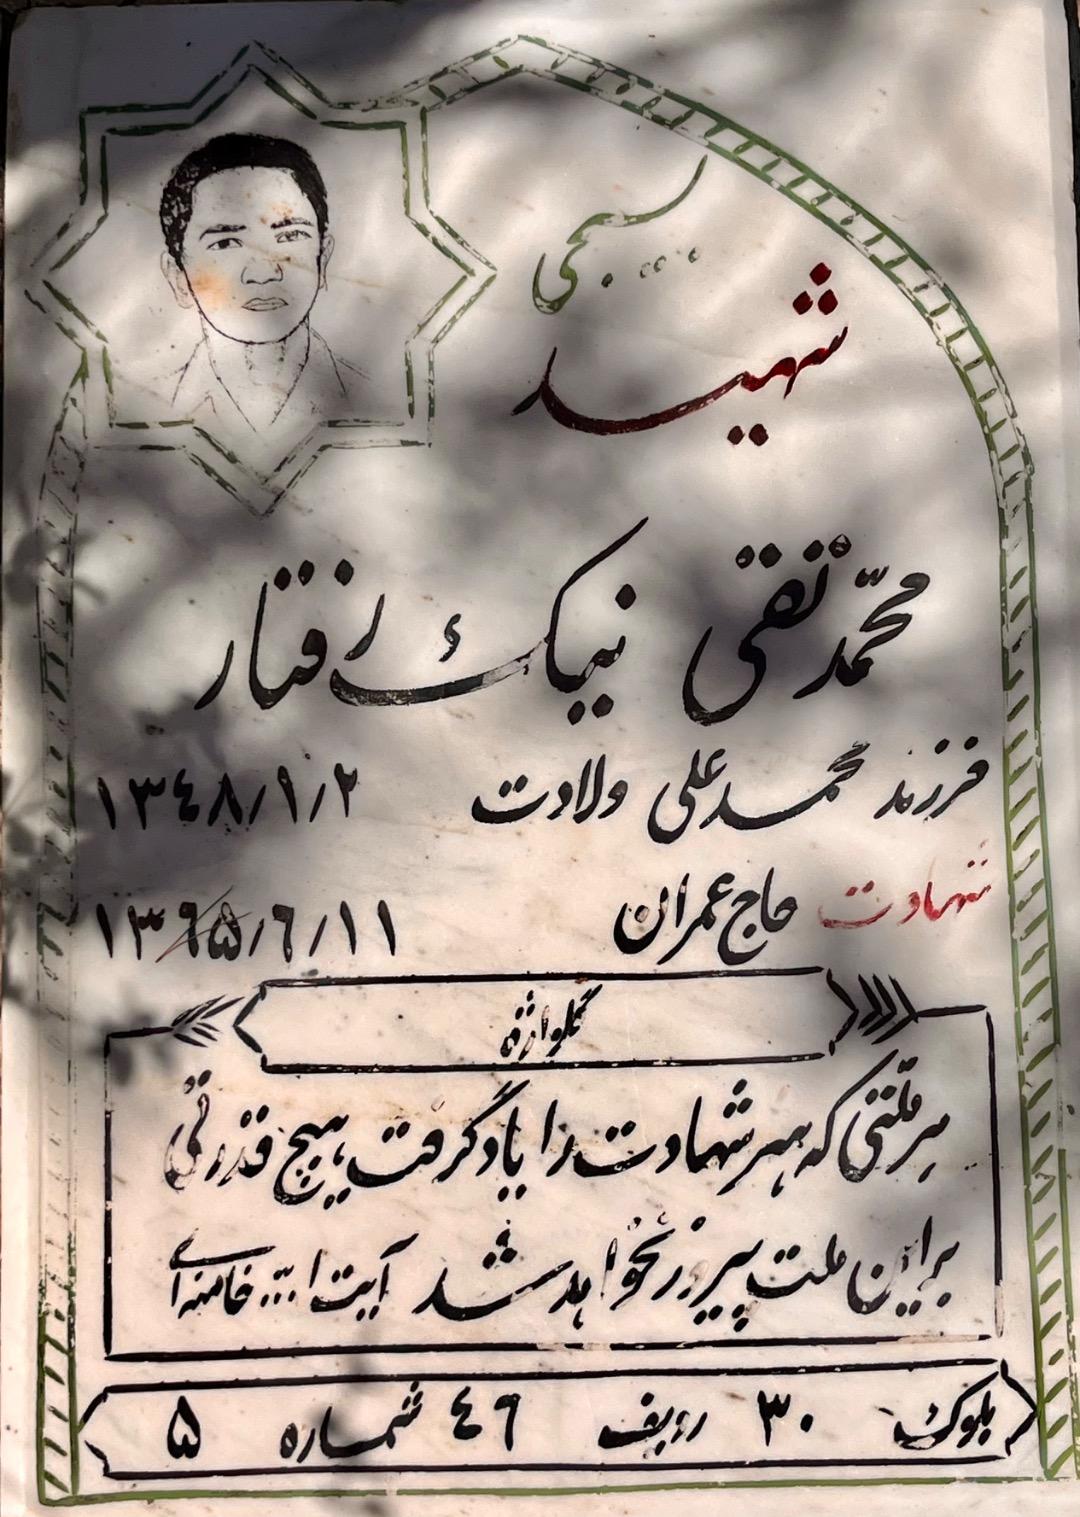 بسیجی
شهید
محمّد تقی نیک رفتار
فرزند محمد علی ولادت ۱۳٤۸/۱/۲
شهادت حاج عمران ۱۳۶۵/۶/۱۱
گلواژه
هر ملتی که هنر شهادت را یاد گرفت هیچ قدرتی
بر این ملت پیروز نخواهد شد آیت ا... خامنه ای
بلوک ۳۰ ردیف ٤۶ شماره ۵